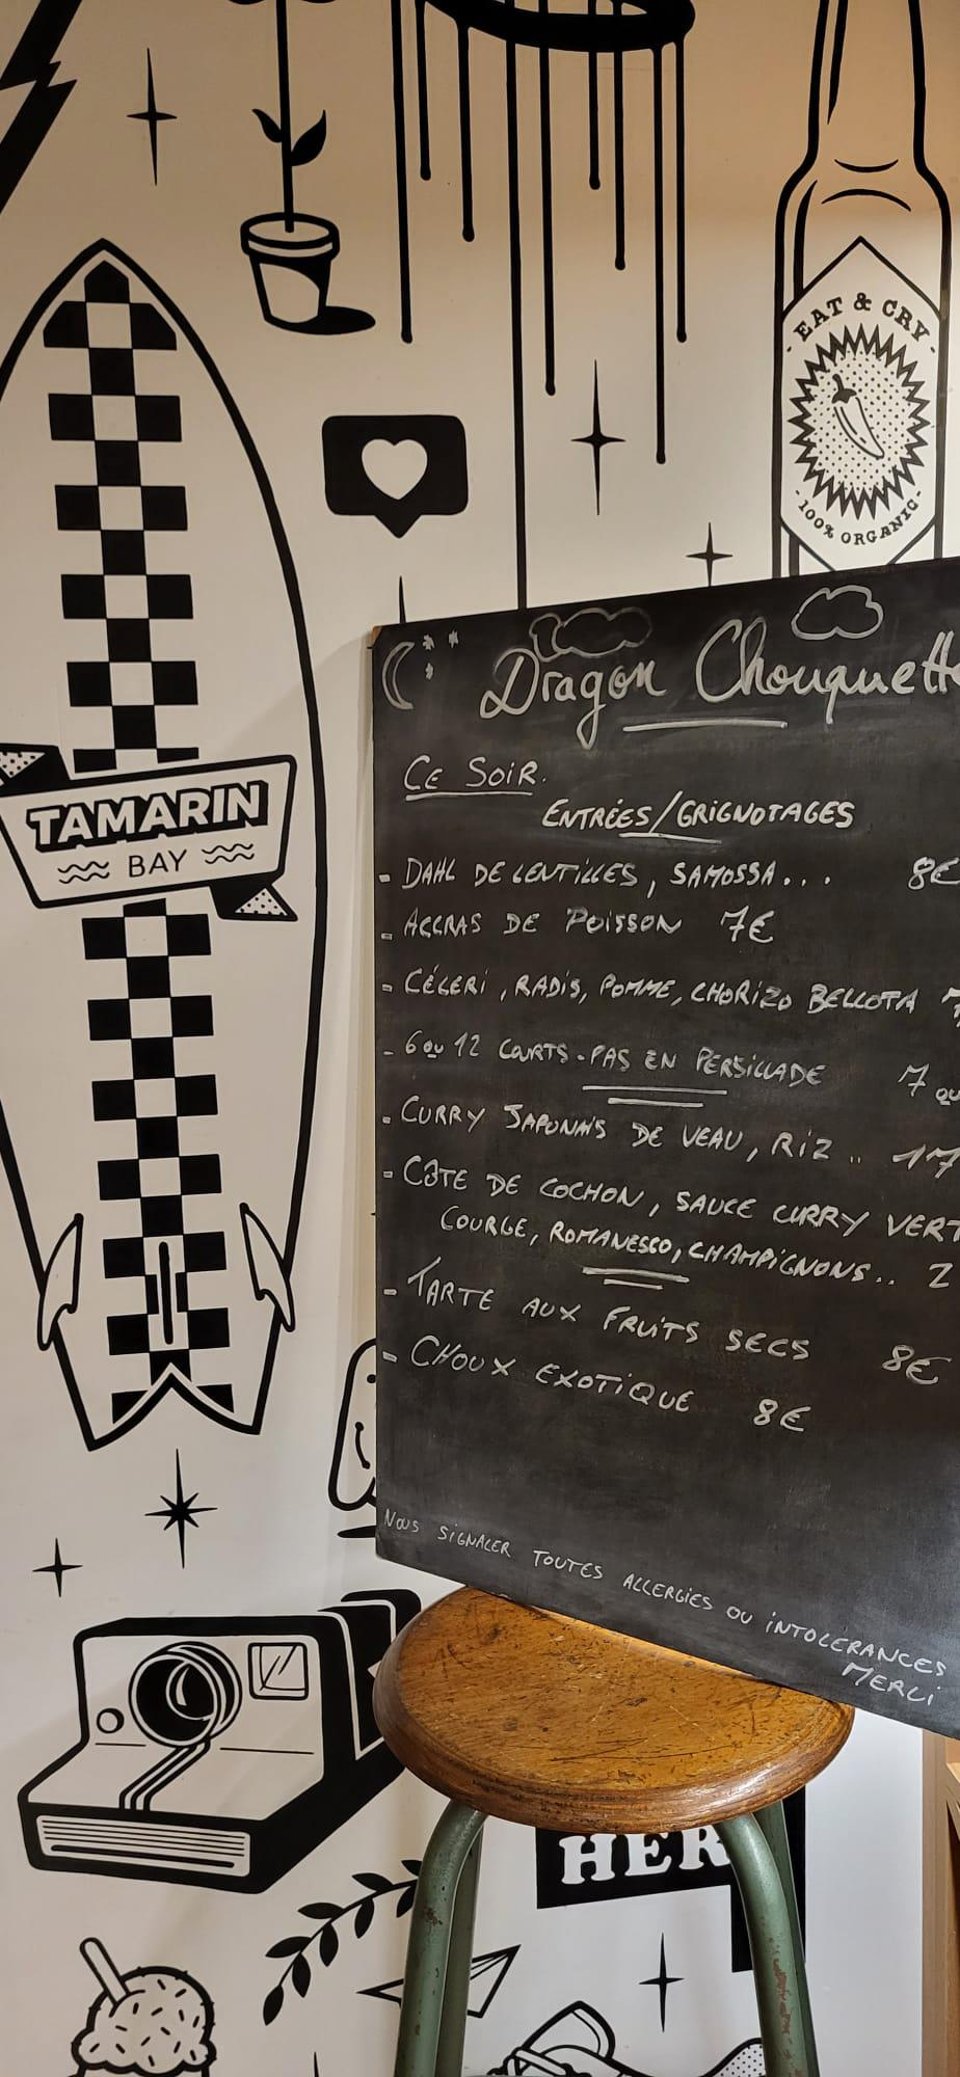 EAT & CRY
100% ORGANIC
TAMARIN
BAY
Dragon Chouquette
CE SOIR.
ENTRÉES/GRIGNOTAGES
- DAHL DE LENTILLES, SAMOSSA... 8€
- ACCRAS DE POISSON 7€
- CÉLERI, RADIS, POMME, CHORIZO BELLOTA 7
- 6 ou 12 COURTS-PAS EN PERSILLADE 7 ou
- CURRY JAPONAIS DE VEAU, RIZ .. 17
- CÔTE DE COCHON, SAUCE CURRY VERT
COURGE, ROMANESCO, CHAMPIGNONS.. 2
- TARTE AUX FRUITS SECS 8€
- CHOUX EXOTIQUE 8€
NOUS SIGNALER TOUTES ALLERGIES OU INTOLERANCES
MERCI
HER